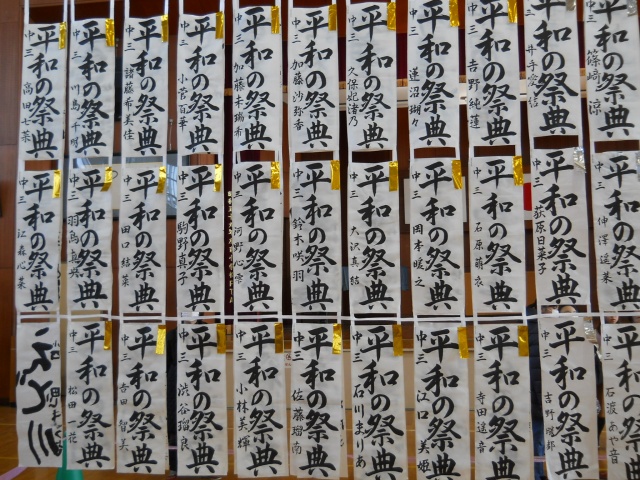 平和の祭典
中三 高田七菜
平和の祭典
中三 川島千町
平和の祭典
中三 諸藤希美佳
平和の祭典
中三 小菅百華
平和の祭典
中三 加藤未瑞希
平和の祭典
中三 加藤沙弥香
平和の祭典
中三 久保妃渚乃
平和の祭典
中三 蓮沼瑚々
平和の祭典
中三 吉野純蓮
平和の祭典
中三
平和の祭典
中三 篠崎涼
平和の祭典
中三 江森心菜
平和の祭典
中三 羽鳥真央
平和の祭典
中三 田口結菜
平和の祭典
中三 駒野真子
平和の祭典
中三 河野心雫
平和の祭典
中三 鈴木咲羽
平和の祭典
中三 大沢真結
平和の祭典
中三 岡本暖之
平和の祭典
中三 石原萌衣
平和の祭典
中三 荻原日菜子
平和の祭典
中三 仲澤遥菜
平和の祭典
中三 松田一花
平和の祭典
中三 吉田智美
平和の祭典
中三 渋谷瑠良
平和の祭典
中三 小林美輝
平和の祭典
中三 佐藤瑠南
平和の祭典
中三 石川まりあ
平和の祭典
中三 江口美姫
平和の祭典
中三 寺田遥音
平和の祭典
中三 吉野
平和の祭典
中三 石渡あや音